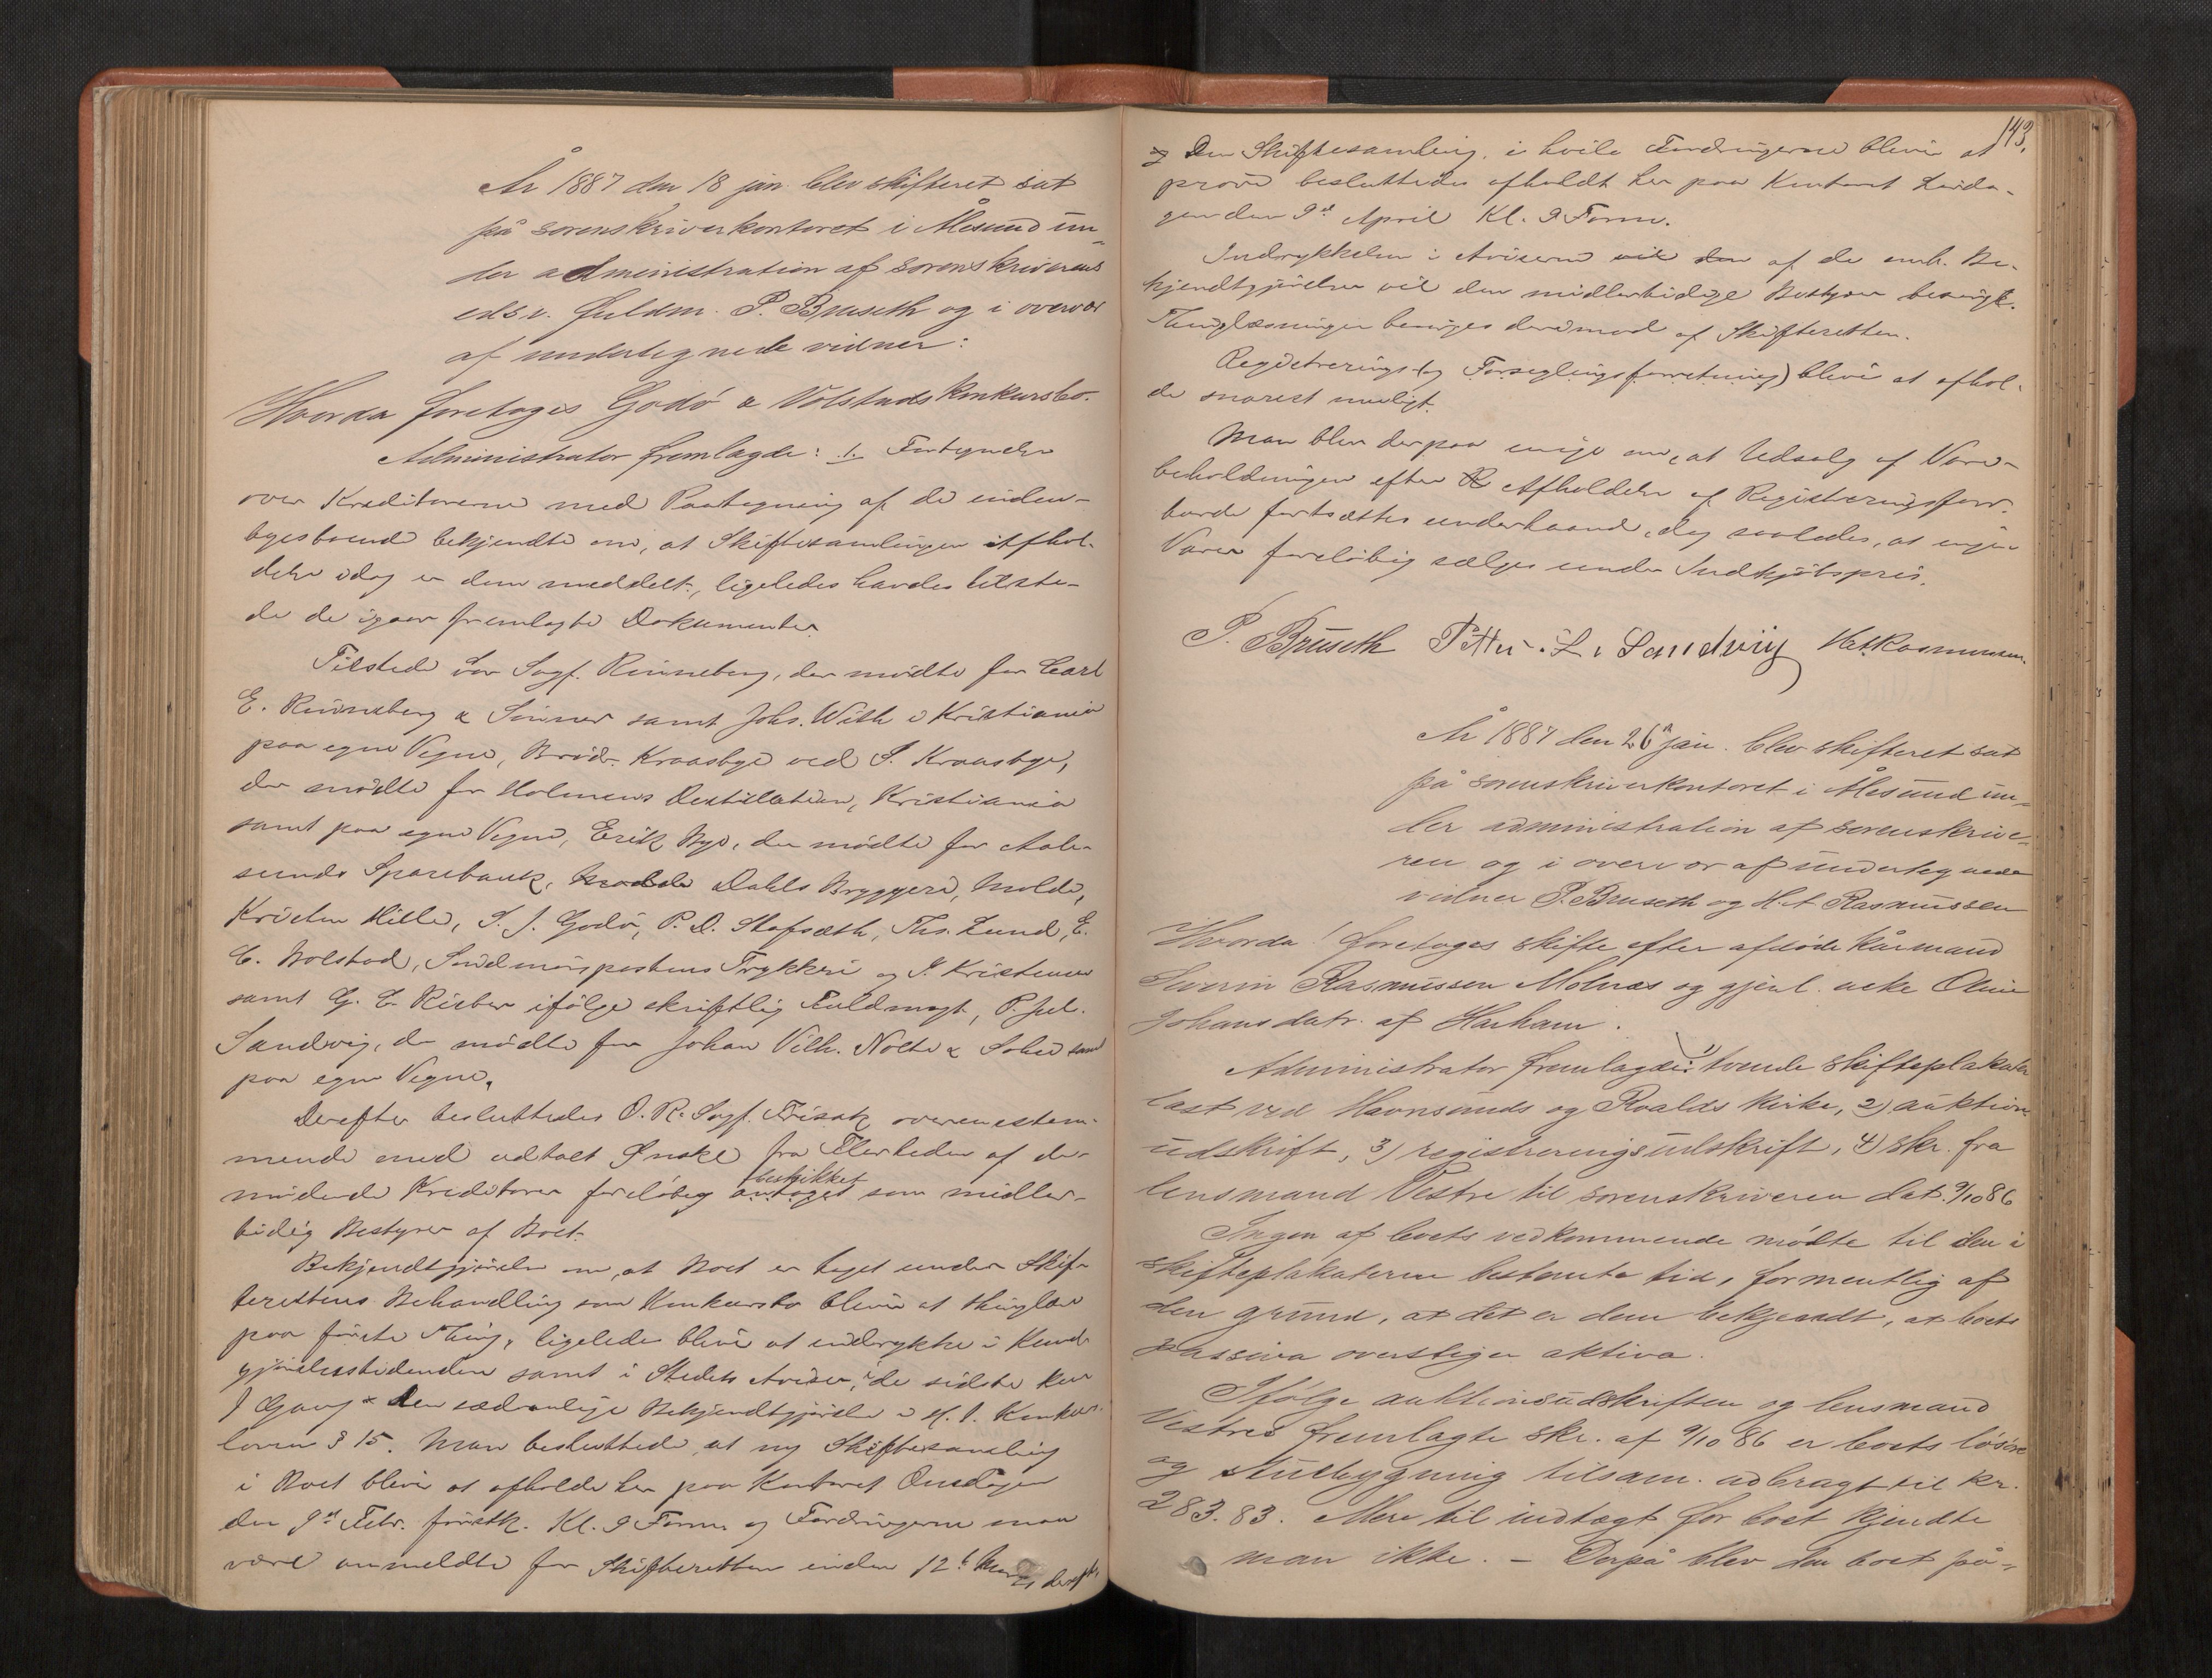 År 1887 den 18 jan. blev skifteret sat
på sorenskriverkontoret i Ålesund un-
der administration af sorenskriverens
eds.v. fuldm. P. Bruseth og i overvær
af undertegnede vidner:
Hvorda foretoges Godö & Volstads konkursbo.
Administrator fremlagde: 1. Fortegnelse
over Kreditorerne med Paategning af de inden-
bysboende bekjendte om, at Skiftesamlingen Afhol-
delse idag er dem meddelt, ligeledes havdes tilste-
de de igaar fremlagte Dokumenter.
Tilstede var Sagf. Rinneberg, der mødte for Carl
E. Rinneberg & Sønner samt Johs. With i Kristiania
paa egne Vegne, Brødr. Kraasbye ved S. Kraasbye,
der mødte for Holmens Destillation, Kristiania
samt paa egne Vegne, Erik Nyø, der mødte for Aale-
sunds Sparebank, Dahls Bryggeri, Molde,
Kristen Hille, S. J. Godø, P. D. Stafsæth, Ths. Lund, E.
C. Volstad, Søndmørspostens Trykkeri og P. Kristensen
samt G. C. Rieber ifølge skriftlig Fuldmagt, P. Jul.
Sandvig, der mødte for Johan Vilh. Nolte & Sohn samt
paa egne Vegne.
Derefter besluttedes O. R. Sagf. Frisak overensstem-
mende med udtalt Ønske fra Flerheden af de
mødende Kreditorer foreløbig antaget beskikket som midler-
tidig Bestyrer af Boet.
Bekjendtgjørelse om, at Boet er taget under Skif-
terettens Behandling som Konkursbo bliver at thinglæse
paa første Thing, ligeledes bliver at indrykke i Kund-
gjørelsestidenden samt i Stedets Aviser, i de sidste kun
1 Gang den sædvanlige Bekjendtgjørelse i H. t. Konkurs-
loven § 15. Man besluttede, at ny Skiftesamling
i Boet bliver at afholde her paa Kontoret Onsdagen
den 9de Febr. førstk. Kl. 9 Form. og Fordringerne maa
være anmeldte for Skifteretten inden 12te Marts derefter
143.
Den Skiftesamling, i hvilke Fordringerne bliver at
prøve besluttedes afholdt her paa Kontoret Lørda-
gen den 9de April Kl. 9 Form.
Indrykkelsen i Aviserne af de omh. Be-
kjendtgjørelser vil den midlertidige Bestyrer besørge.
Thinglæsningen besørges derimod af Skifteretten.
Registrerings (og Forseglingsforretning) bliver at afhol-
de snarest muligt.
Man blev derpaa enige om, at Udsalg af Vare-
beholdningen efter Afholdelse af Registreringsforr.
burde fortsættes underhaand, dog saaledes, at ingen
Varer foreløbig sælges under Indkjøbspris.
P. Bruseth Petter J. L. Sandvig H.A. Rasmussen.
År 1887 den 26 jan. blev skifteret sat
på sorenskriverkontoret i Ålesund un-
der administration af sorenskrive-
ren og i overvær af undertegnede
vidner P. Bruseth og H. A. Rasmussen
Hvorda! foretoges skifte efter afdöde kårmand
Severin Rasmussen Molnæs og gjenl. enke Oline
Johansdatr. af Harham.
Administrator fremlagde: 1) tvende skifteplakater
læst ved Havnsunds og Roalds kirke, 2) auktions-
udskrift, 3) registreringsudskrift, 4) skr. fra
lensmand Vestre til sorenskriveren dat. 9/10 86
Ingen af boets vedkommende mødte til den i
skifteplakaterne bestemte tid, formentlig af
den grund, at det er dem bekjendt, at boets
passiva overstiger aktiva.
Ifølge auktionsudskriften og lensmand
Vestres fremlagte skr. af 9/10 86 er boets løsøre
og stuebygning tilsam. udbragt til kr.
283.83. Mere til indtægt for boet kjendte
man ikke. – Derpå blev der boet på-